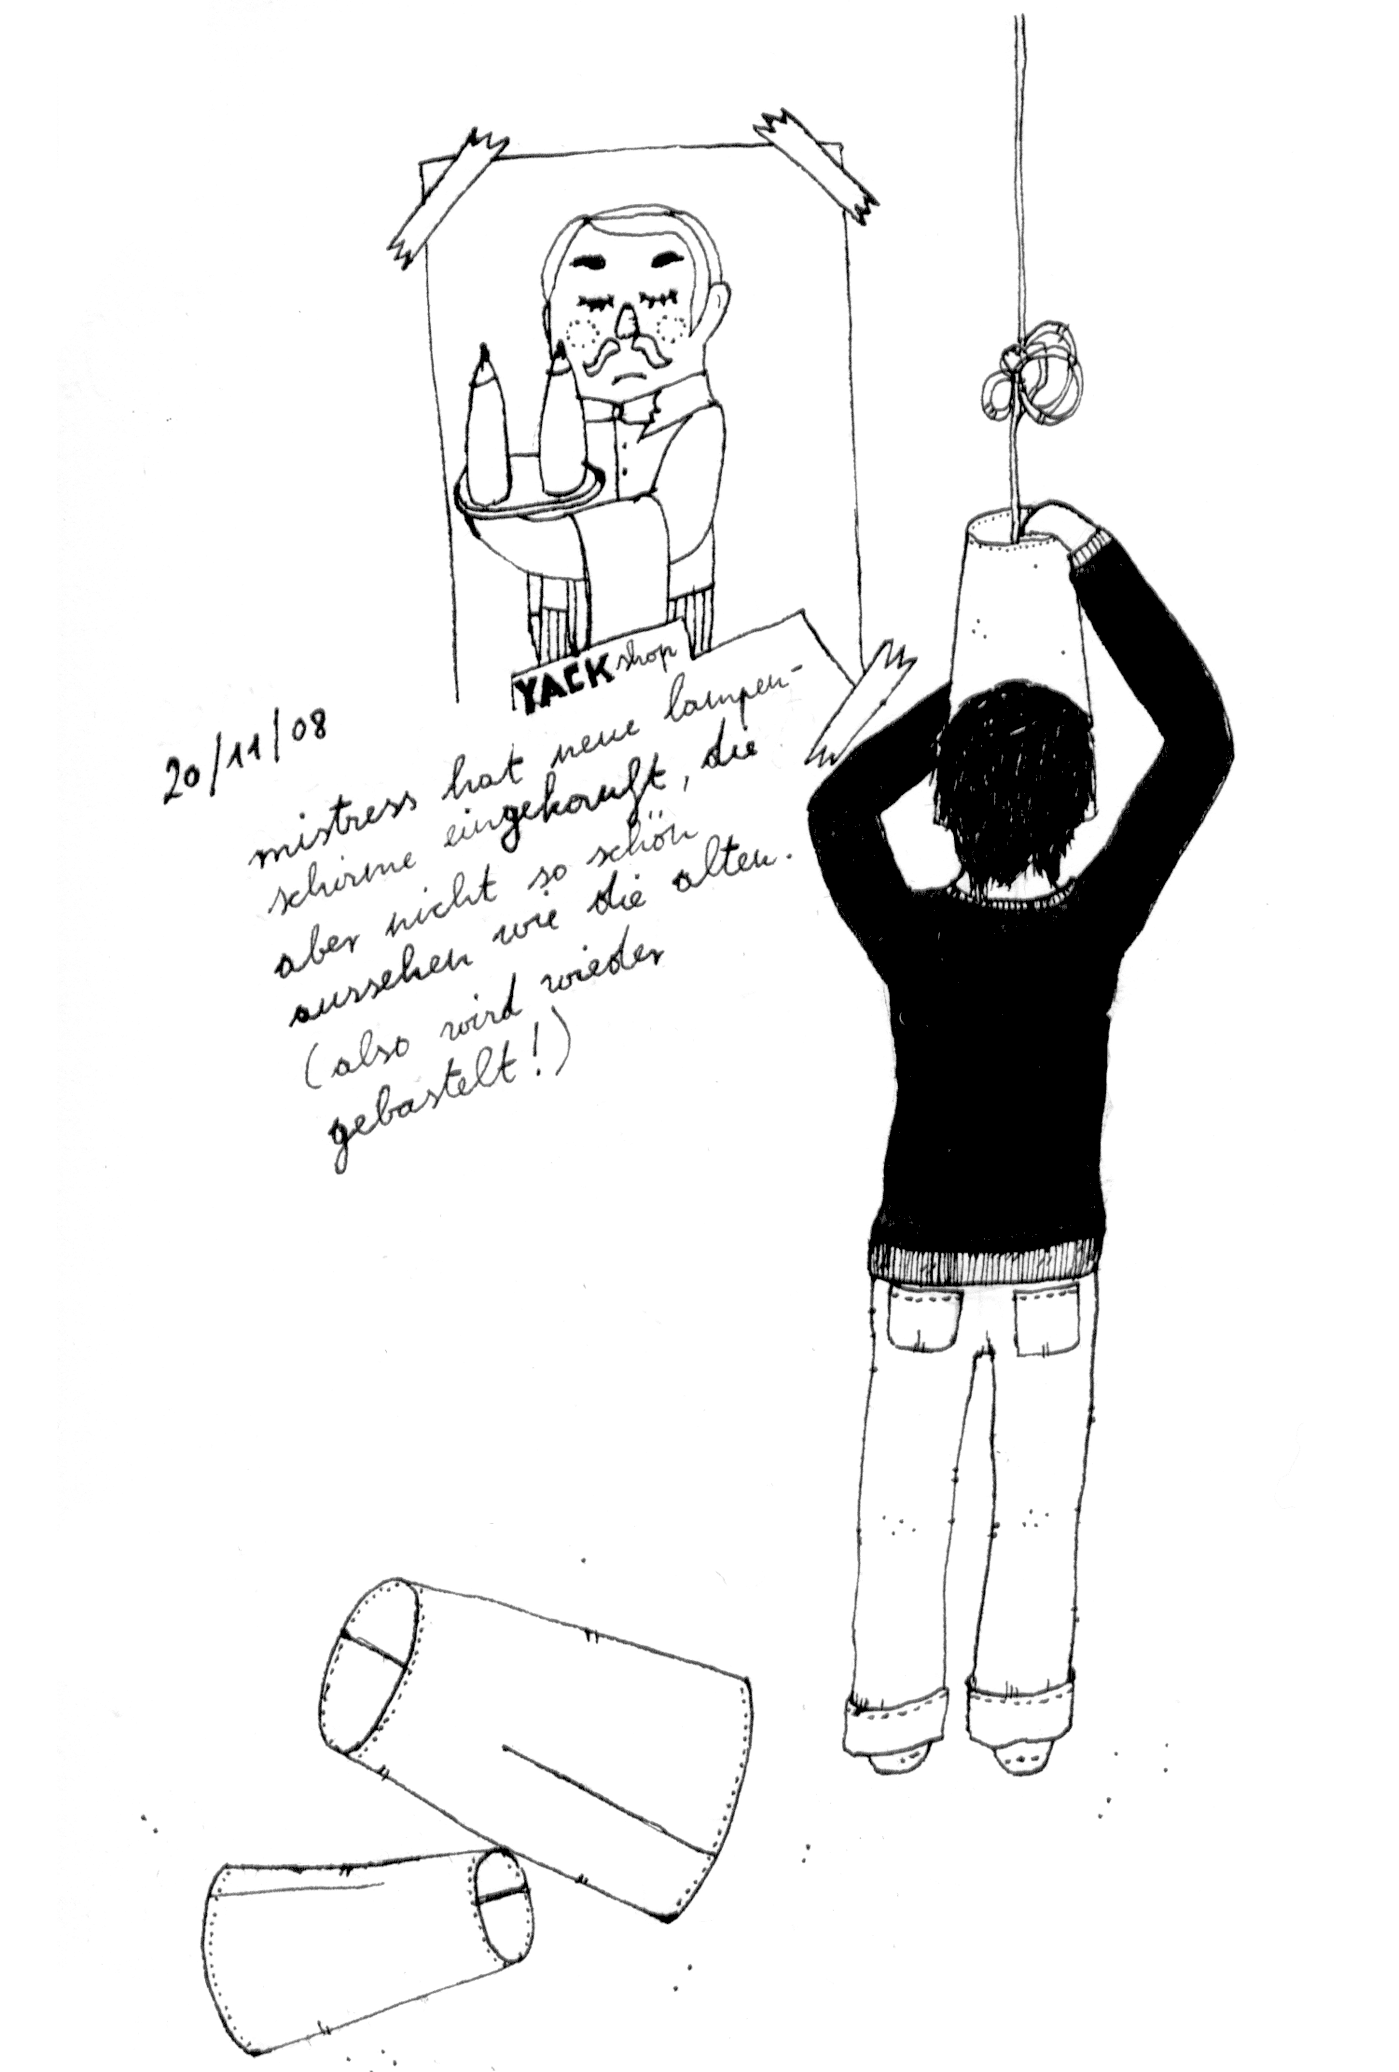 YACK shop
20/11/08
mistress hat neue lampen-
schirme eingekauft, die
aber nicht so schön
aussehen wie die alten.
(also wird wieder
gebastelt!)